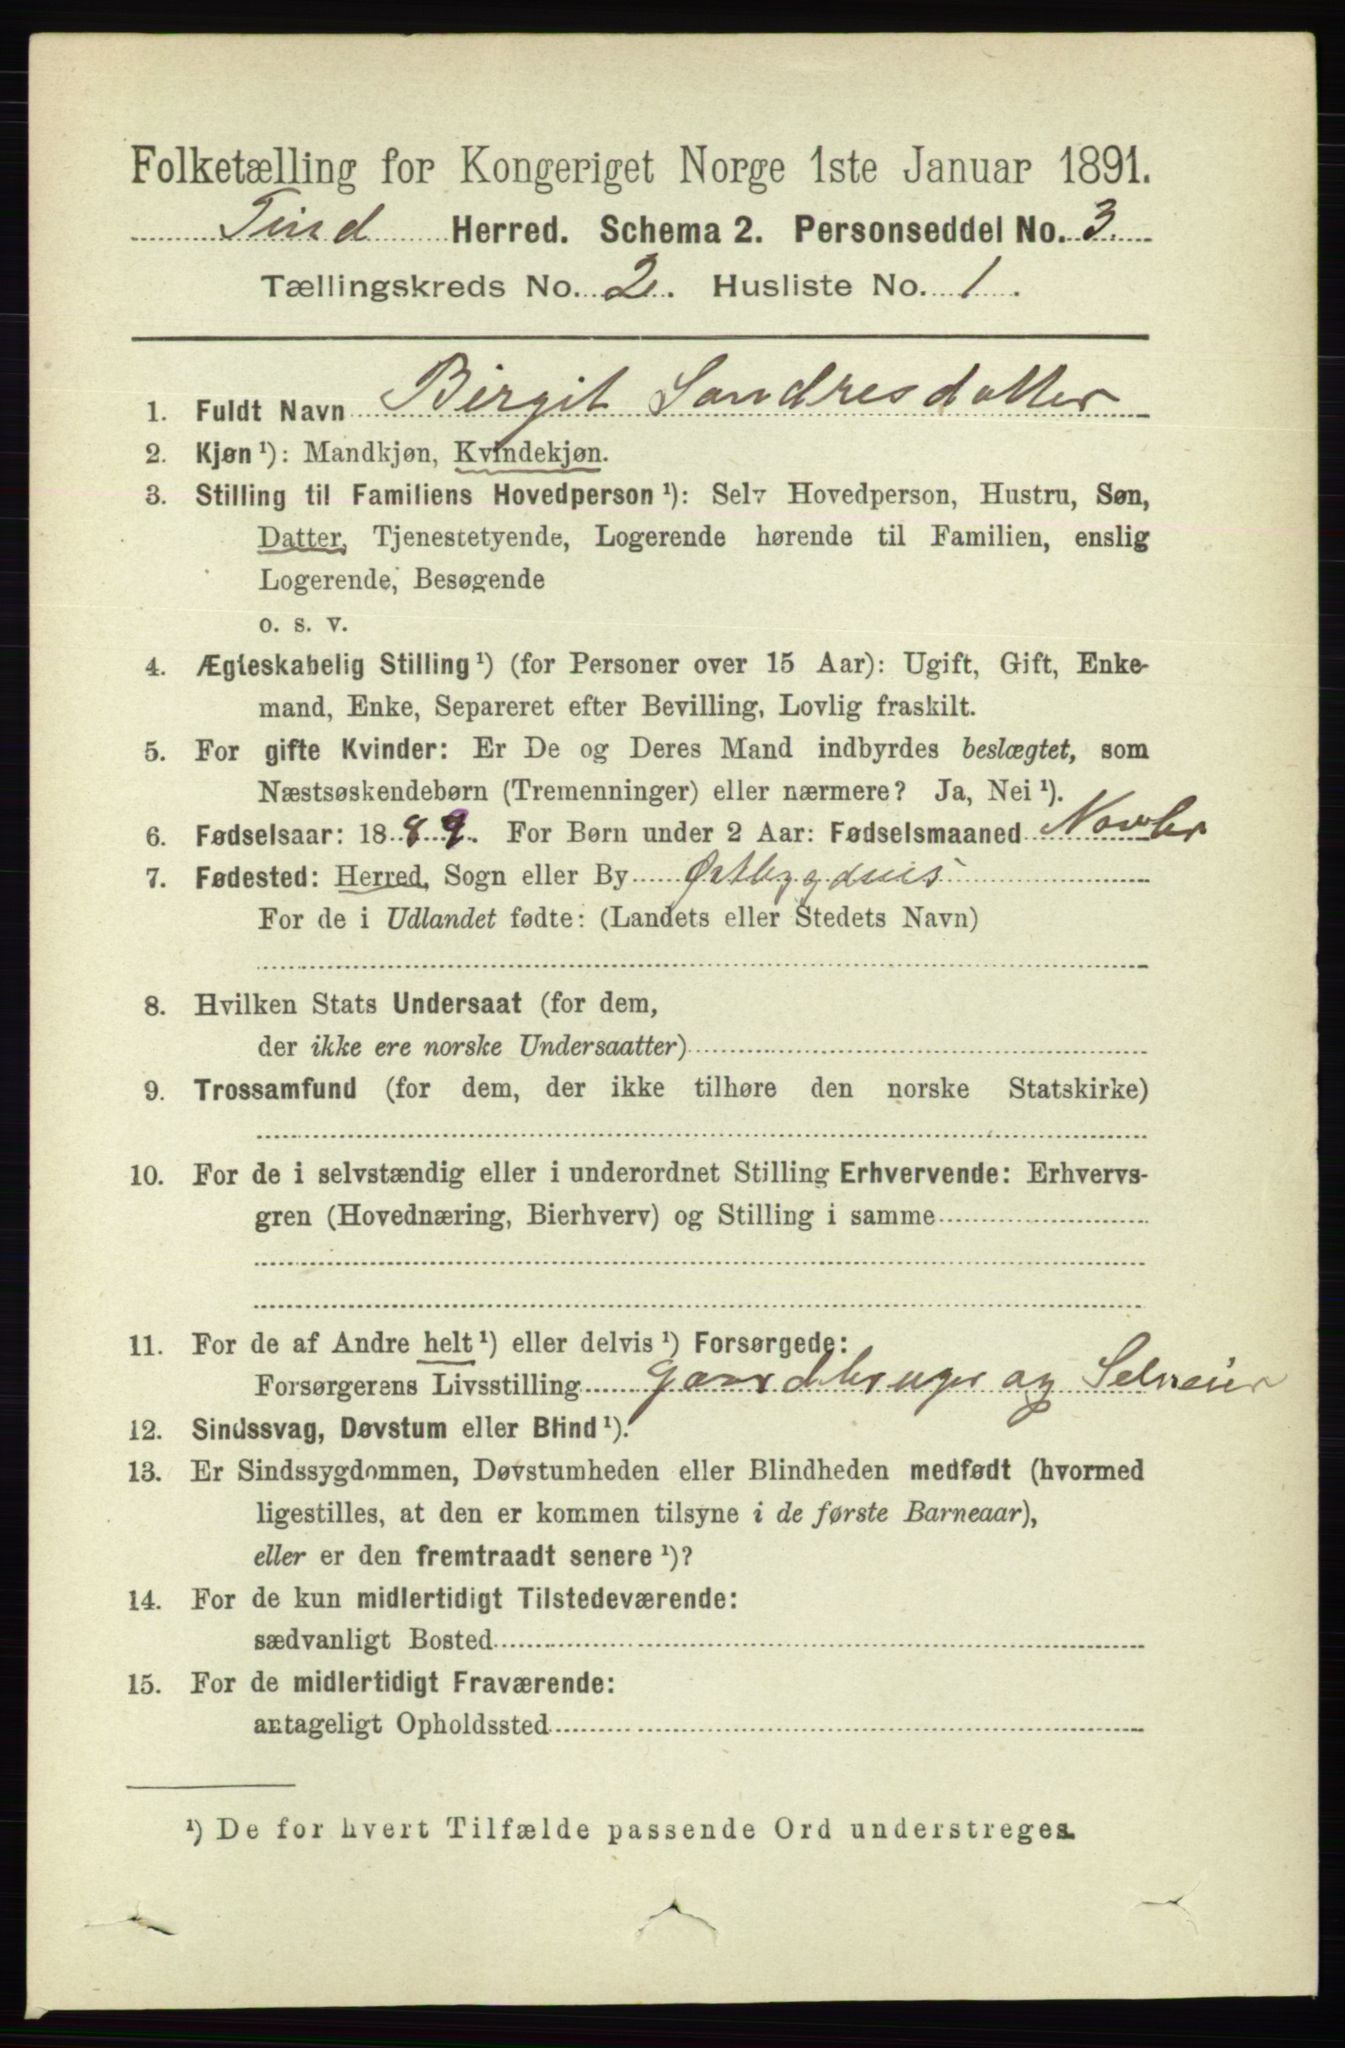 Folketælling for Kongeriget Norge 1ste Januar 1891.
Tind Herred. Schema 2. Personseddel No. 3.
Tællingskreds No. 2. Husliste No. 1.
1. Fuldt Navn Birgit Sondresdatter
2. Kjøn ¹): Mandkjøn, Kvindekjøn.
3. Stilling til Familiens Hovedperson ¹): Selv Hovedperson, Hustru, Søn,
Datter, Tjenestetyende, Logerende hørende til Familien, enslig
Logerende, Besøgende
o. s. v.
4. Ægteskabelig Stilling ¹) (for Personer over 15 Aar): Ugift, Gift, Enke-
mand, Enke, Separeret efter Bevilling, Lovlig fraskilt.
5. For gifte Kvinder: Er De og Deres Mand indbyrdes beslægtet, som
Næstsøskendebørn (Tremenninger) eller nærmere? Ja, Nei ¹).
6. Fødselsaar: 1889. For Børn under 2 Aar: Fødselsmaaned Novbr
7. Fødested: Herred, Sogn eller By
For de i Udlandet fødte: (Landets eller Stedets Navn)
8. Hvilken Stats Undersaat (for dem,
der ikke ere norske Undersaatter)
9. Trossamfund (for dem, der ikke tilhøre den norske Statskirke)
10. For de i selvstændig eller i underordnet Stilling Erhvervende: Erhvervs-
gren (Hovednæring, Bierhverv) og Stilling i samme
11. For de af Andre helt ¹) eller delvis ¹) Forsørgede:
Forsørgerens Livsstilling Gaardbruger og Selveier
12. Sindssvag, Døvstum eller Blind ¹).
13. Er Sindssygdommen, Døvstumheden eller Blindheden medfødt (hvormed
ligestilles, at den er kommen tilsyne i de første Barneaar),
eller er den fremtraadt senere ¹)?
14. For de kun midlertidigt Tilstedeværende:
sædvanligt Bosted
15. For de midlertidigt Fraværende:
antageligt Opholdssted
¹) De for hvert Tilfælde passende Ord understreges.